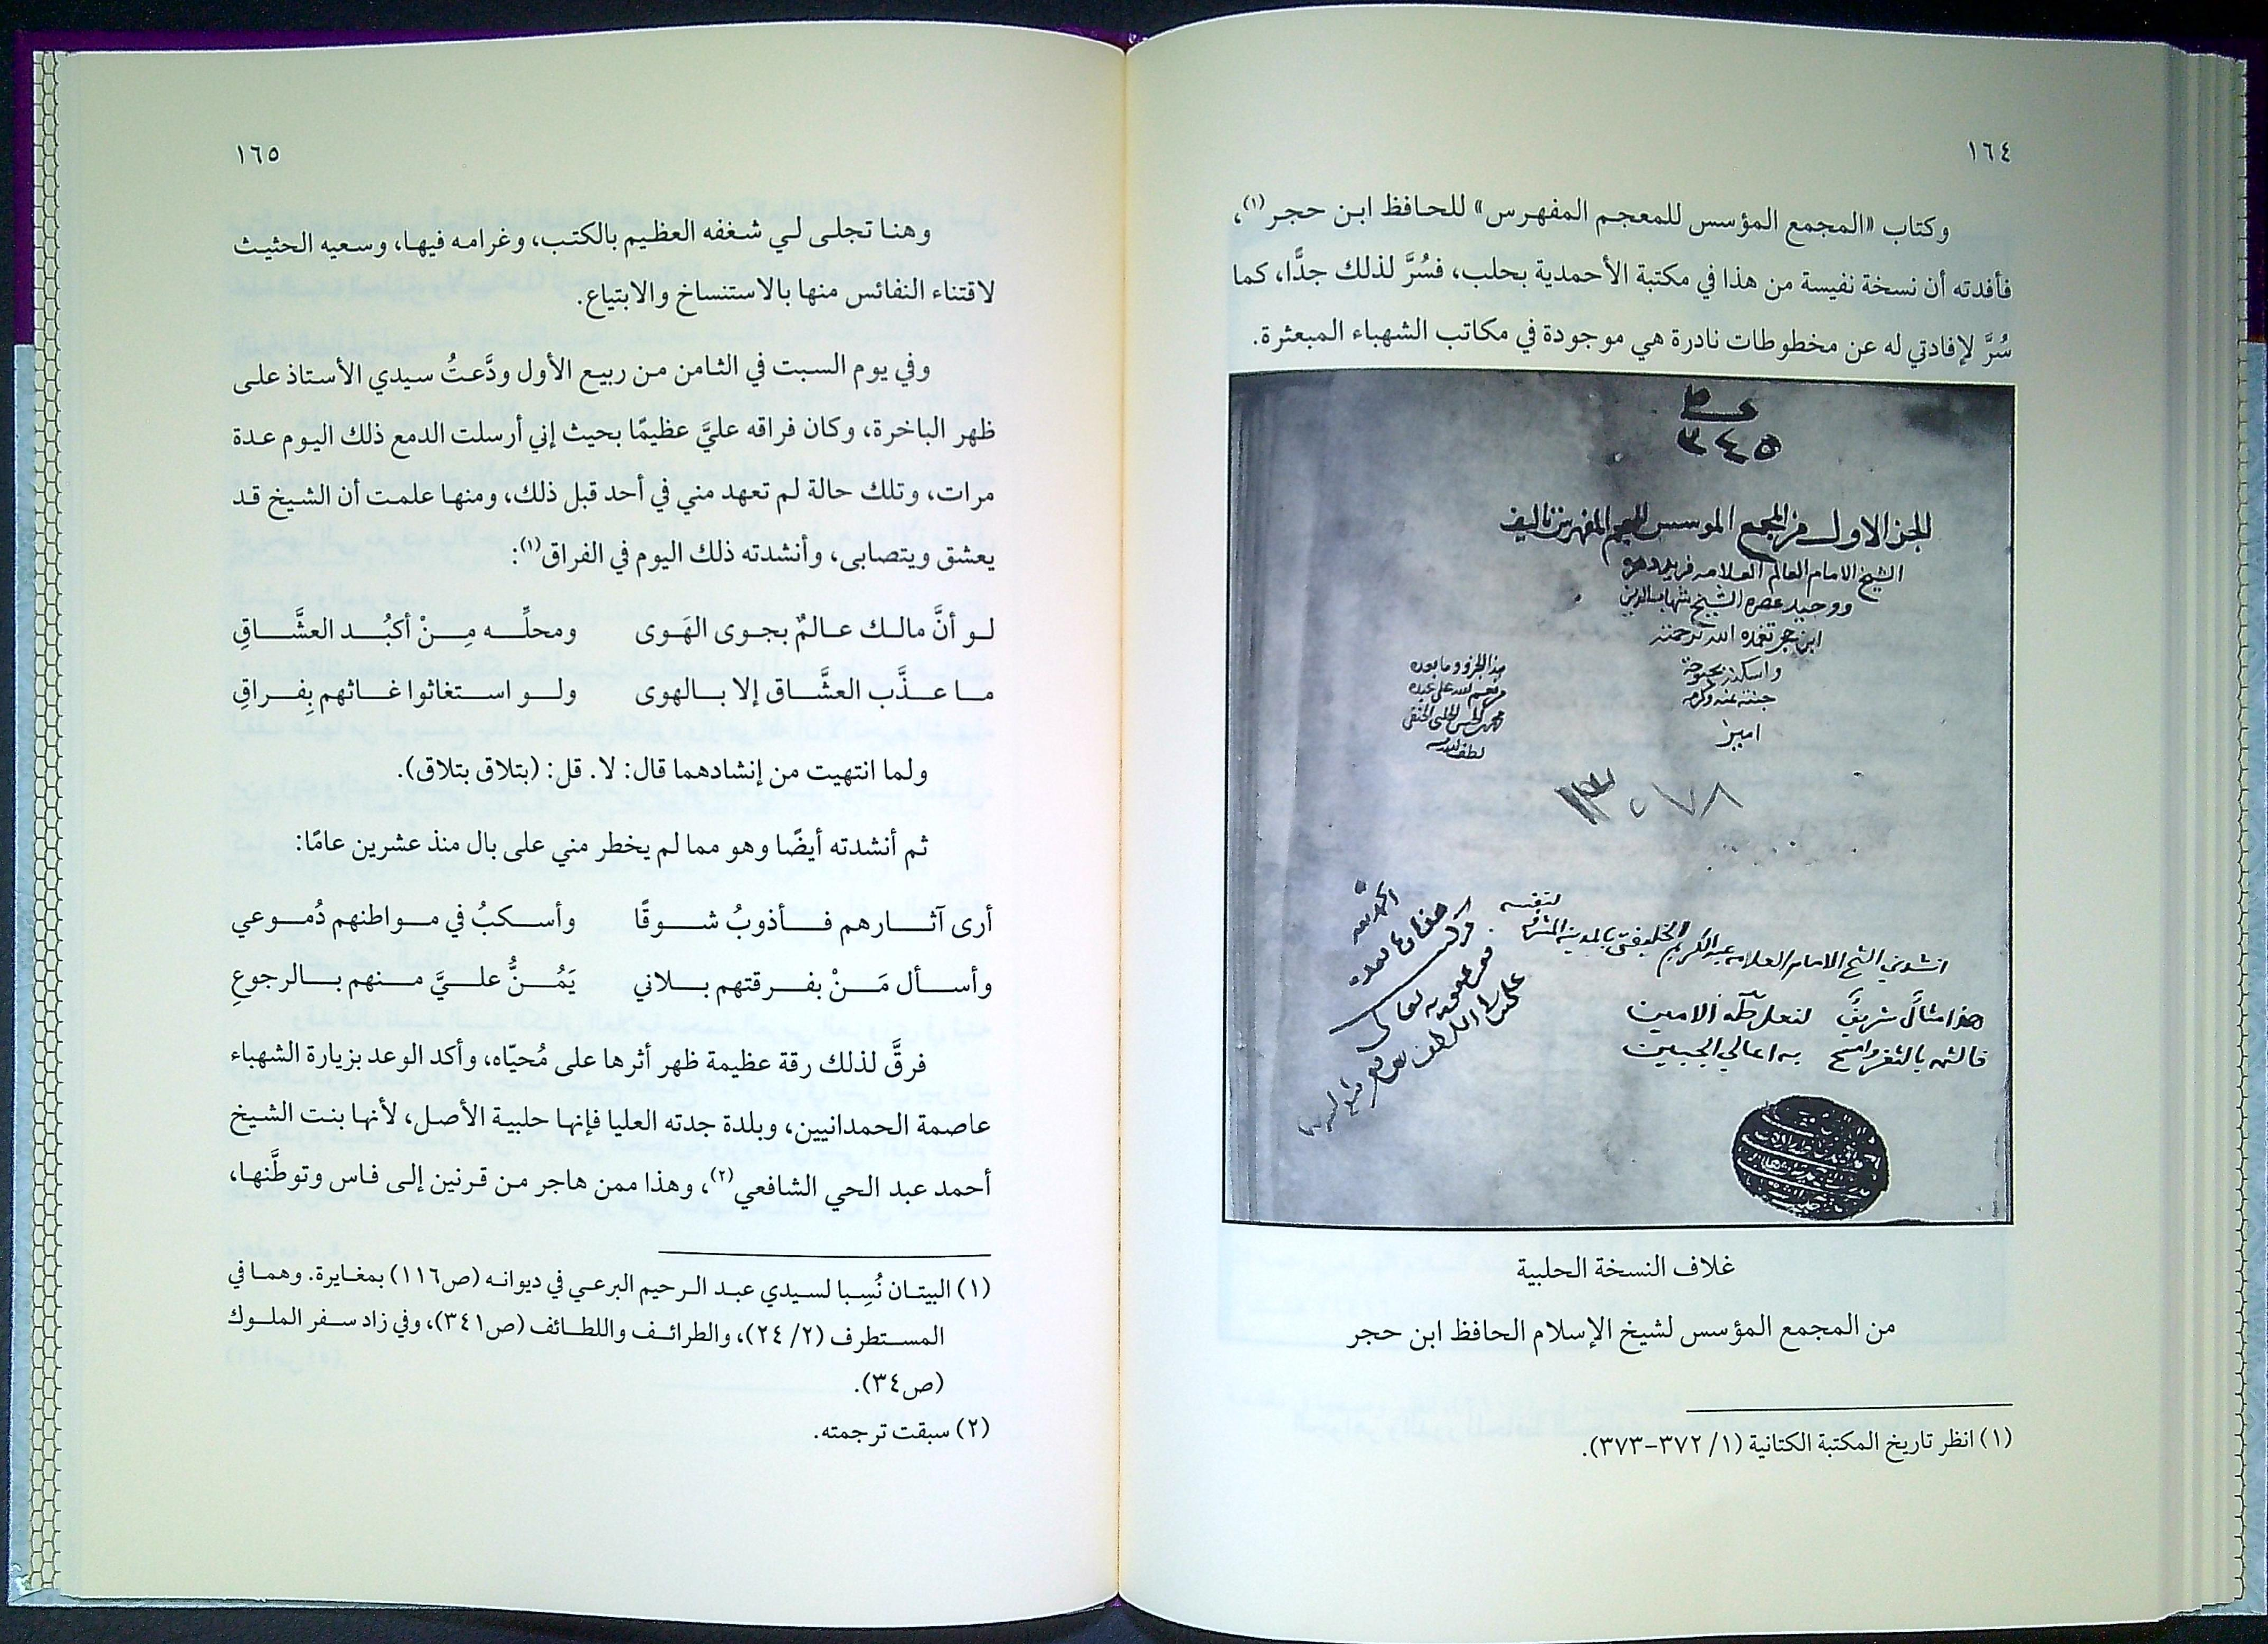 ١٦٤
وكتاب «المجمع المؤسس للمعجم المفهرس» للحافظ ابن حجر(١)،
فأفدته أن نسخة نفيسة من هذا في مكتبة الأحمدية بحلب، فسُرَّ لذلك جدًّا، كما
سُرَّ لإفادتي له عن مخطوطات نادرة هي موجودة في مكاتب الشهباء المبعثرة.
٣٤٥
الجزء الاول من المجمع الموسس للمعجم المفهرس تاليف
الشيخ الامام العالم العلامه فريد دهره
ووحيد عصره الشيخ شهاب الدين
ابن حجر تغمده الله برحمته
واسكنه بحبوحة
جنته بمنه وكرمه
امين
هذا الجزو وما بعده
من نعم الله على عبده
لطف الله به
انشدني الشيخ الامام العلامه عبد الكريم الخليفتي بالمدينة المشرفة
لنفسه
هذا مثال شريف لنعل طه الامين
فالثمه بالثغر وامسح به اعالي الجبين
غلاف النسخة الحلبية
من المجمع المؤسس لشيخ الإسلام الحافظ ابن حجر
(١) انظر تاريخ المكتبة الكتانية (١/ ٣٧٢-٣٧٣).
١٦٥
وهنا تجلى لي شغفه العظيم بالكتب، وغرامه فيها، وسعيه الحثيث
لاقتناء النفائس منها بالاستنساخ والابتياع.
وفي يوم السبت في الثامن من ربيع الأول ودَّعتُ سيدي الأستاذ على
ظهر الباخرة، وكان فراقه عليَّ عظيمًا بحيث إني أرسلت الدمع ذلك اليوم عدة
مرات، وتلك حالة لم تعهد مني في أحد قبل ذلك، ومنها علمت أن الشيخ قد
يعشق ويتصابى، وأنشدته ذلك اليوم في الفراق(١):
لو أنَّ مالك عالمٌ بجوى الهَوى ومحلِّه مِنْ أكبُد العشَّاقِ
ما عذَّب العشَّاق إلا بالهوى ولو استغاثوا غاثهم بِفراقِ
ولما انتهيت من إنشادهما قال: لا. قل: (بتلاق بتلاق).
ثم أنشدته أيضًا وهو مما لم يخطر مني على بال منذ عشرين عامًا:
أرى آثارهم فأذوبُ شوقًا وأسكبُ في مواطنهم دُموعي
وأسأل مَنْ بفرقتهم بلاني يَمُنُّ عليَّ منهم بالرجوعِ
فرقَّ لذلك رقة عظيمة ظهر أثرها على مُحيّاه، وأكد الوعد بزيارة الشهباء
عاصمة الحمدانيين، وبلدة جدته العليا فإنها حلبية الأصل، لأنها بنت الشيخ
أحمد عبد الحي الشافعي(٢)، وهذا ممن هاجر من قرنين إلى فاس وتوطَّنها،
(١) البيتان نُسِبا لسيدي عبد الرحيم البرعي في ديوانه (ص١١٦) بمغايرة. وهما في
المستطرف (٢/ ٢٤)، والطرائف واللطائف (ص٣٤١)، وفي زاد سفر الملوك
(ص٣٤).
(٢) سبقت ترجمته.